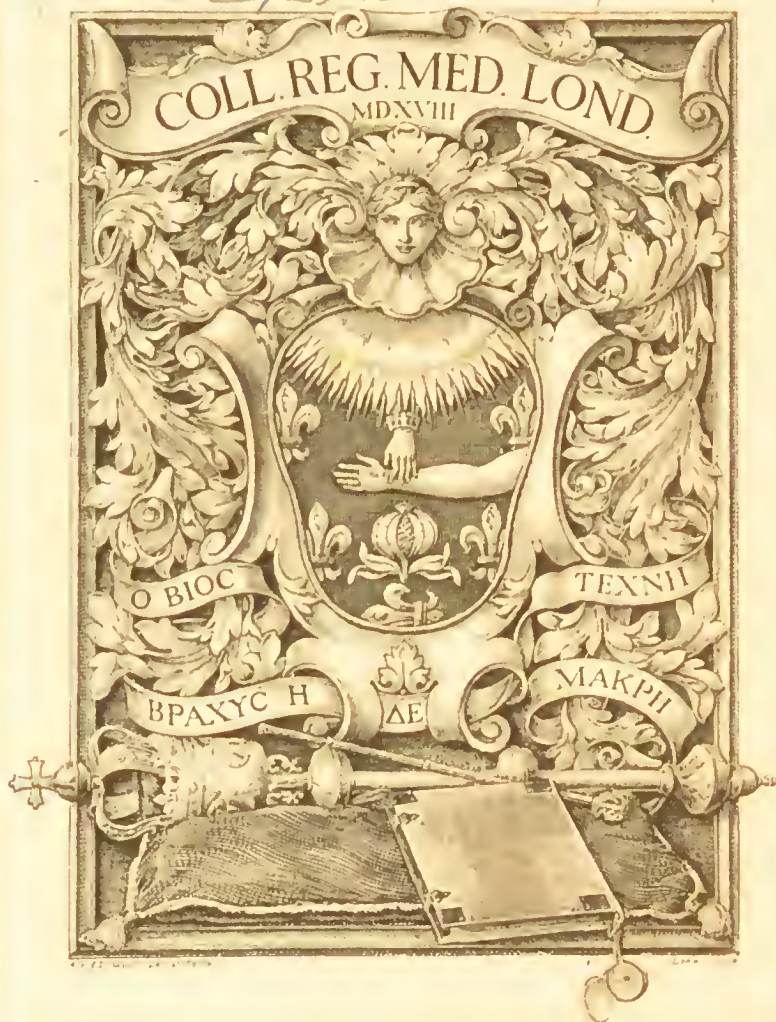 COLL. REG. MED. LOND.
MDXVIII
Ο ΒΙΟϹ
ΤΕΧΝΗ
ΒΡΑΧΥϹ Η
ΔΕ
ΜΑΚΡΗ